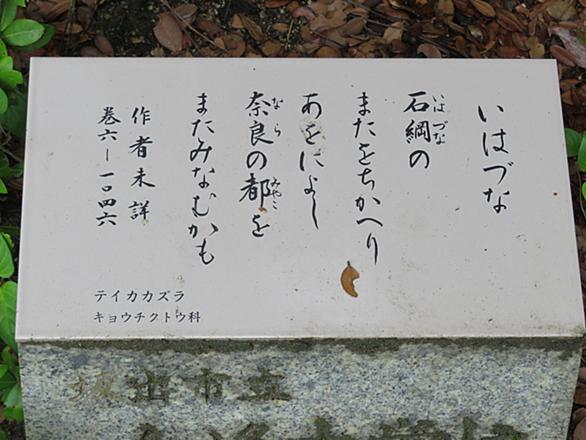 いはづな
石綱の
いはづな
またをちかへり
あをによし
奈良の都を
なら
みやこ
またみなむかも
作者未詳
巻六ー一〇四六
テイカカズラ
キョウチクトウ科
市立